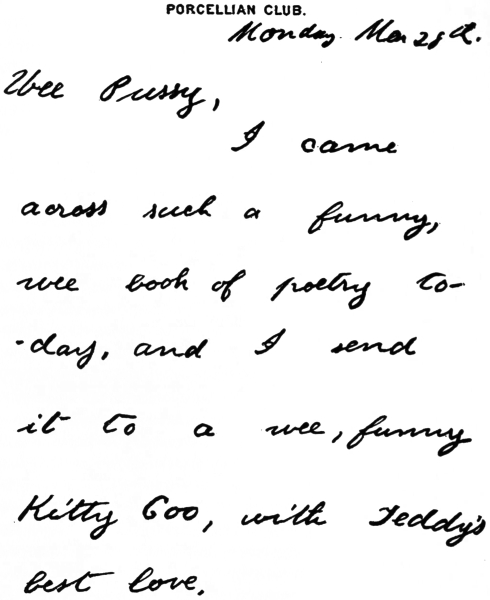 PORCELLIAN CLUB.
Monday Mar 28th.
Wee Pussy,
I came
across such a funny,
wee book of poetry to-
-day, and I send
it to a wee, funny
Kitty Coo, with Teddy's
best love.